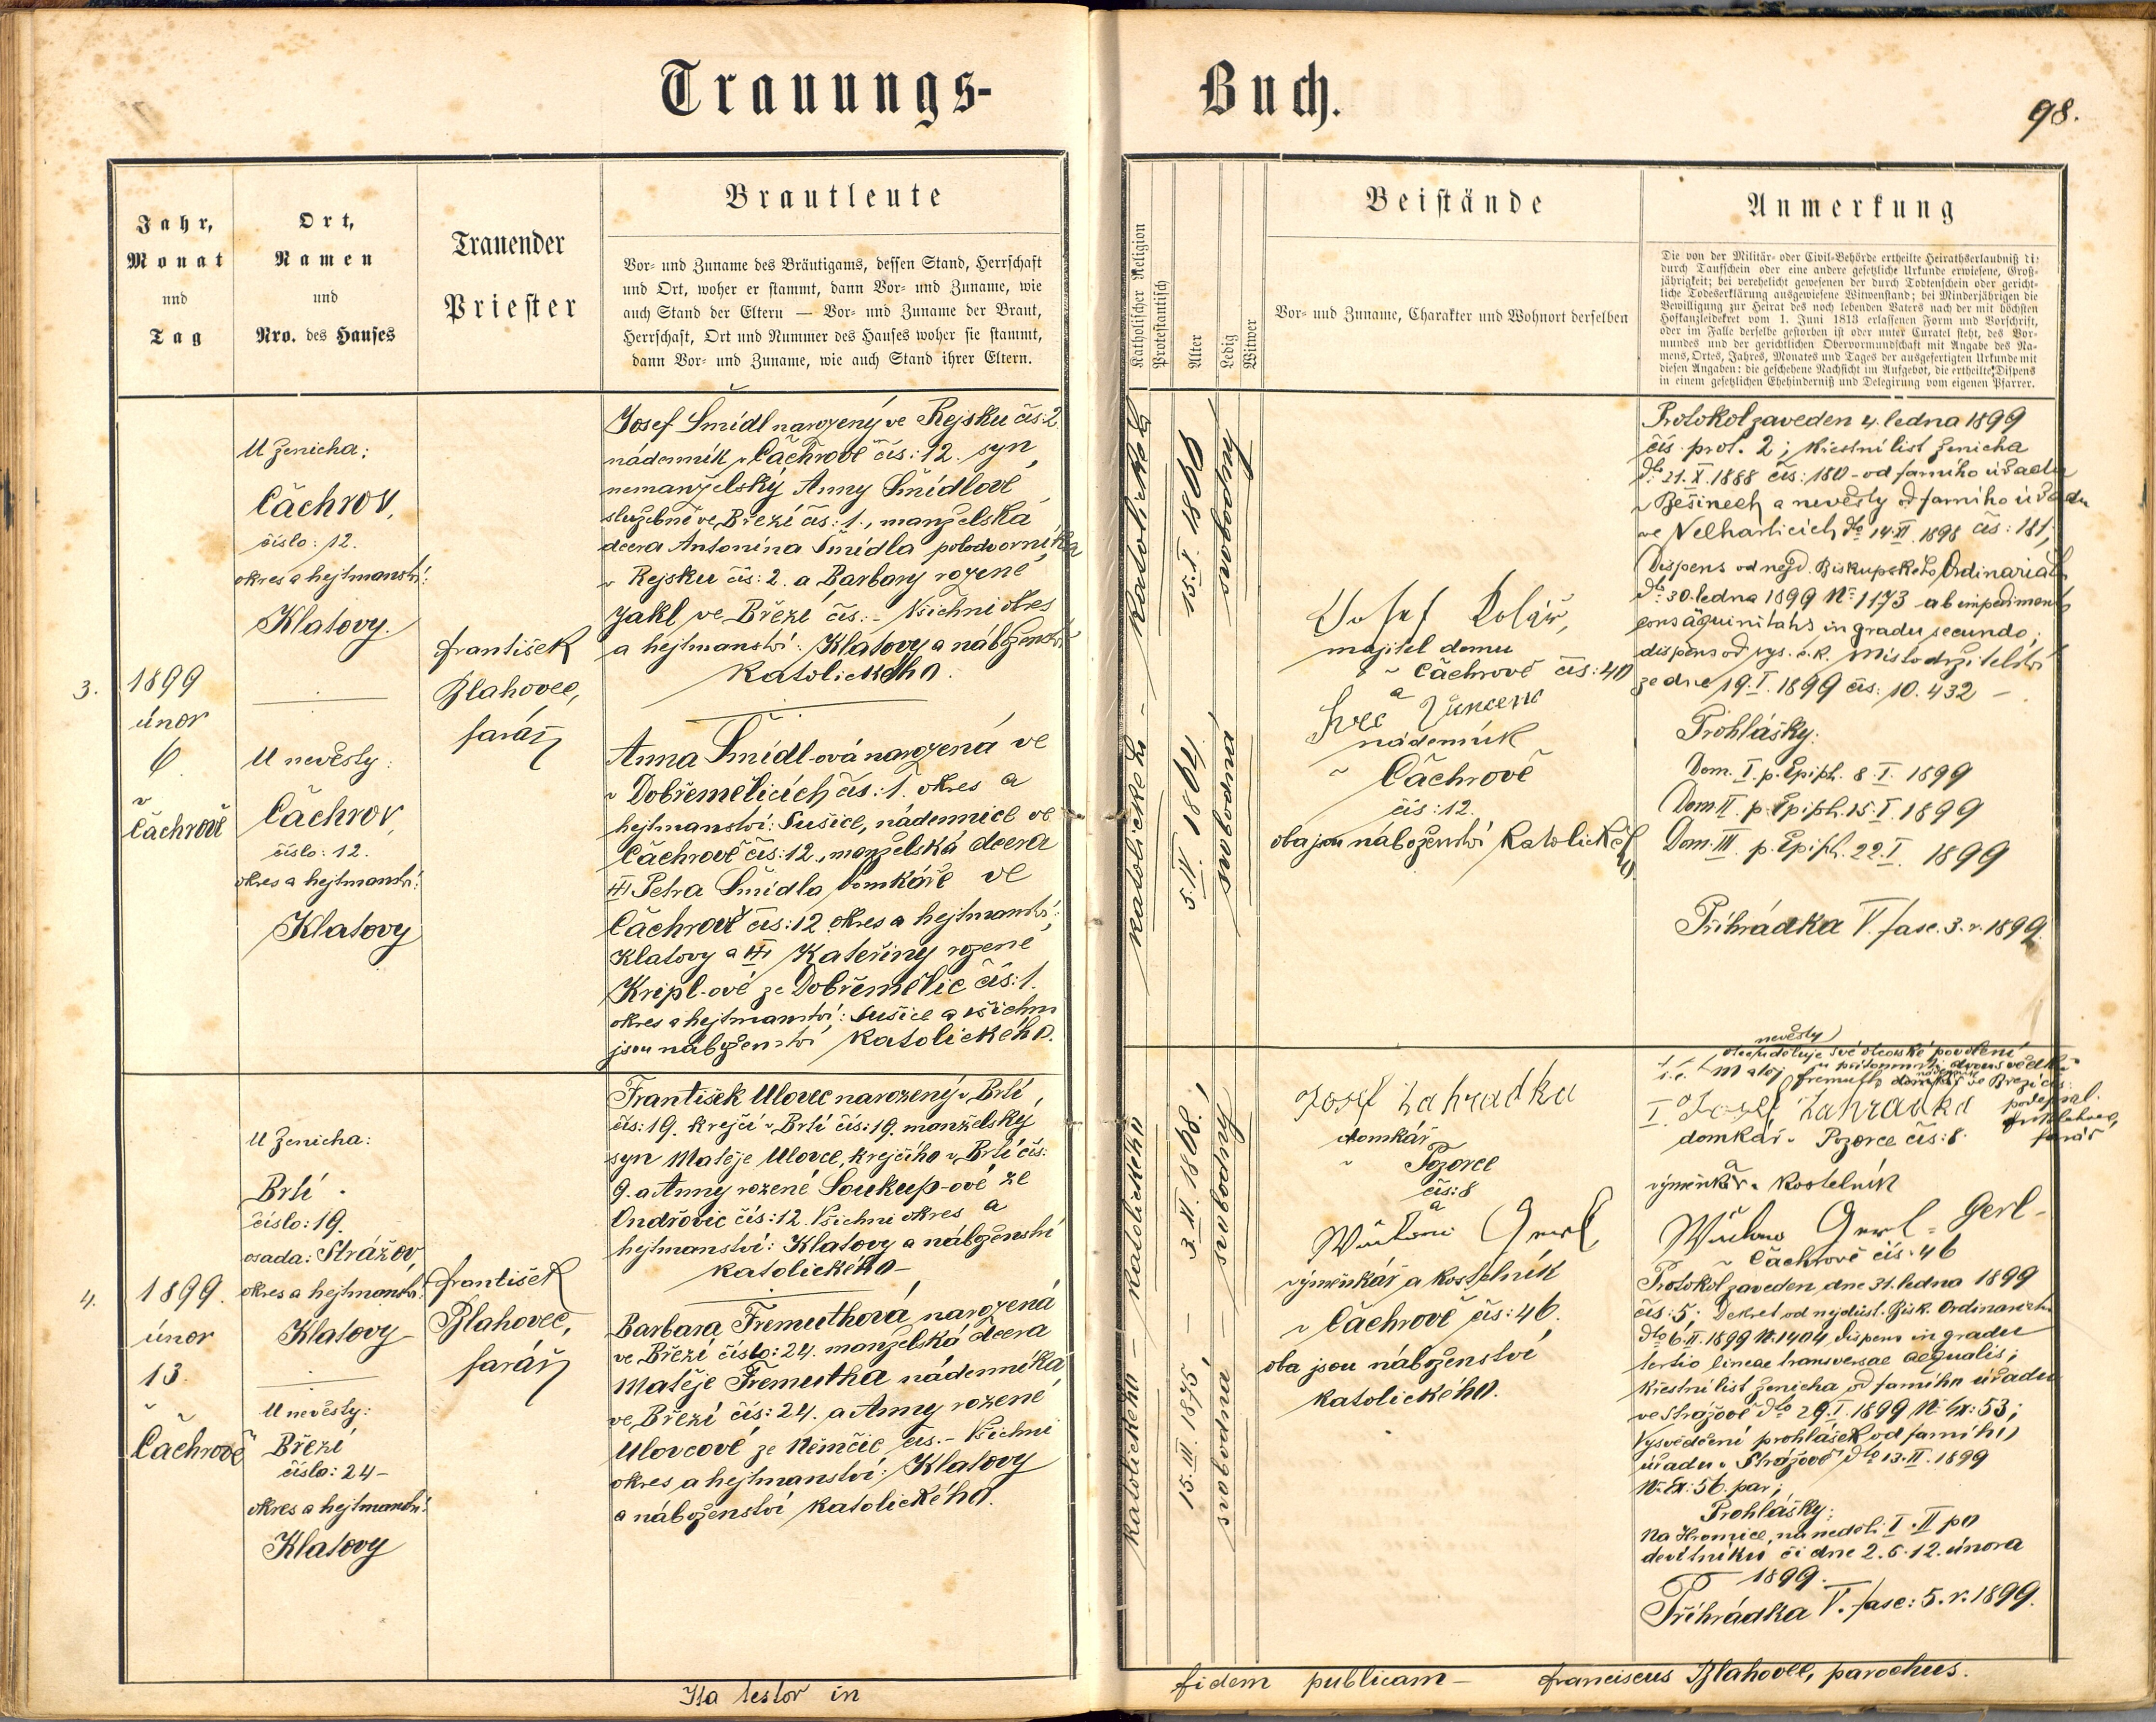 Trauungs-
Buch.
98.
Jahr,
Monat
und
Tag
Ort,
Namen
und
Nro. des Hauses
Trauender
Priester
Brautleute
Vor- und Zuname des Bräutigams, dessen Stand, Herrschaft
und Ort, woher er stammt, dann Vor- und Zuname, wie
auch Stand der Eltern — Vor- und Zuname der Braut,
Herrschaft, Ort und Nummer des Hauses woher sie stammt,
dann Vor- und Zuname, wie auch Stand ihrer Eltern.
Katholischer Religion
Protestantisch
Alter
Ledig
Witwer
Beistände
Vor- und Zuname, Charakter und Wohnort derselben
Anmerkung
Die von der Militär- oder Civil-Behörde ertheilte Heirathserlaubniß
durch Taufschein oder eine andere gesetzliche Urkunde erwiesene, Groß-
jährigkeit; bei verehelicht gewesenen der durch Todtenschein oder gericht-
liche Todeserklärung ausgewiesene Witwenstand; bei Minderjährigen die
Bewilligung zur Heirat des noch lebenden Vaters nach der mit höchsten
Hofkanzleidekret vom 1. Juni 1813 erlassenen Form und Vorschrift,
oder im Falle derselbe gestorben ist oder unter Curatel steht, des Vor-
mundes und der gerichtlichen Obervormundschaft mit Angabe des Na-
mens, Ortes, Jahres, Monates und Tages der ausgefertigten Urkunde mit
diesen Angaben: die geschehene Nachsicht im Aufgebot, die ertheilte Dispens
in einem gesetzlichen Ehehinderniß und Delegirung vom eigenen Pfarrer.
3.
1899
únor
6.
v
Čachrově
U ženicha:
Čachrov,
číslo: 12.
okres a hejtmanství:
Klatovy.
U nevěsty:
Čachrov,
číslo: 12.
okres a hejtmanství:
Klatovy
František
Blahovec,
farář
Josef Šmídl narozený ve Rejsku čís: 2
nádenník v Čachrově čís: 12. syn
nemanželský Anny Šmídlové
služebné ve Březí čís: 1., manželská
dcera Antonína Šmídla polodvorníka
v Rejsku čís: 2. a Barbory rozené
Jakl ve Březí čís: - Všichni okres
a hejtmanství: Klatovy a náboženství
katolického.
Anna Šmídl-ová narozená ve
v Dobřemělicích čís: 1. okres a
hejtmanství: Sušice, nádennice ve
Čachrově čís: 12., manželská dcera
Petra Šmídla domkáře ve
Čachrově čís: 12 okres a hejtmanství:
Klatovy a Kateřiny rozené
Kripl-ové ze Dobřemělic čís: 1.
okres a hejtmanství: Sušice a všichni
jsou náboženství katolického.
katolického -
15. I. 1866
svobodný
katolického -
5. IV. 1864
svobodná
Josef Kolář,
majitel domu
v Čachrově čís: 40
a
nádenník
v Čachrově
čís: 12.
oba jsou náboženství katolického
Protokol zaveden 4. ledna 1899
čís. prot. 2; křestní list ženicha
dto 21. X. 1888 čís: 180 - od farního úřadu
v Bešinech a nevěsty od farního úřadu
ve Velharticích dto 14. II. 1898 čís: 181,
Dispens od nejd. Biskupského Ordinariátu
dto 30. ledna 1899 No 1173 - ab impedimento
consäquinitatis in gradu secundo;
dispens od vys. c. k. Místodržitelství
ze dne 19. I. 1899 čís: 10.432 -
Prohlášky:
Dom. I. p. Epiph. 8. I. 1899
Dom. II. p. Epiph. 15. I. 1899
Dom. III. p. Epiph. 22. I. 1899
Přihrádka V. fasc. 3. r. 1899.
4.
1899.
únor
13.
v
Čachrově
U ženicha:
Brtí.
číslo: 19.
osada: Strážov,
okres a hejtmanství:
Klatovy -
U nevěsty:
Březí
číslo: 24 -
okres a hejtmanství:
Klatovy
František
Blahovec,
farář
František Ulovec narozený v Brtí,
čís: 19. krejčí v Brtí čís: 19. manželský
syn Matěje Ulovce, krejčího v Brtí čís:
9. a Anny rozené Soukup-ové ze
Ondřovic čís: 12. Všichni okres a
hejtmanství: Klatovy a náboženství
katolického -
Barbara Fremuthová, narozená
ve Březí číslo: 24. manželská dcera
Matěje Fremutha nádenníka
ve Březí čís: 24. a Anny rozené
Ulovcové ze Němčic čís. - Všichni
okres a hejtmanství: Klatovy
a náboženství katolického.
katolického
3. II. 1868.
svobodný
katolického -
15. III. 1875,
svobodná
Josef Zahradka
domkář
v Pozorce
čís: 8
a
výměnkář a kostelník
v Čachrově čís: 46.
oba jsou náboženství
katolického.
nevěsty
otec uděluje své otcovské povolení
u přítomnosti dvou svědků
Matěj Fremuth ve Březí čís:
podepsal.
I. Josef Zahradka
domkář v Pozorce čís: 8.
farář
výměnkář a kostelník
Gerl -
v Čachrově čís: 46
Protokol zaveden dne 31. ledna 1899
čís: 5; Dekret od nejdůst. Bisk. Ordinariátu
dto 6. II. 1899 No: 1404 dispens in gradu
tertio lineae transversae aequalis;
křestní list ženicha od farního úřadu
ve Strážově dto 29. I. 1899 No: Ex: 53;
Vysvědčení prohlášek od farního
úřadu v Strážově dto 13. II. 1899
No: Ex: 56. par;
Prohlášky:
Na Hromice, na neděli I. II po
devítníku či dne 2. 5. 12. února
1899.
Přihrádka V. fasc: 5. r. 1899.
Ita testor in
fidem publicam -
Franciscus Blahovec, parochus.